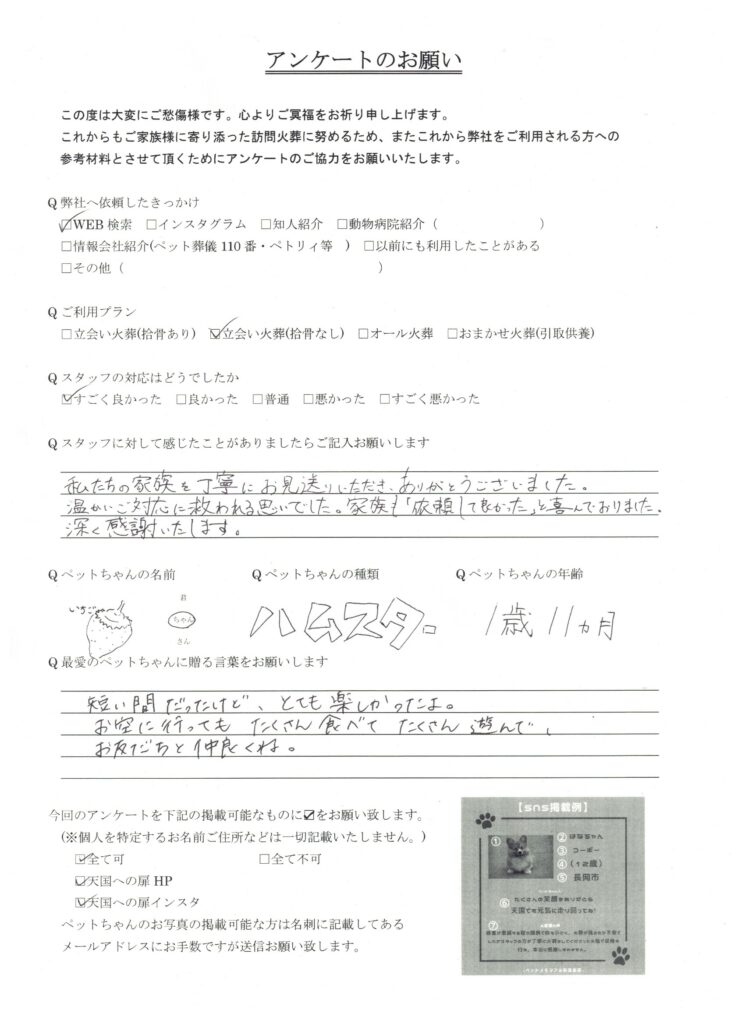 アンケートのお願い
この度は大変にご愁傷様です。心よりご冥福をお祈り申し上げます。
これからもご家族様に寄り添った訪問火葬に努めるため、またこれから弊社をご利用される方への
参考材料とさせて頂くためにアンケートのご協力をお願いいたします。
Q 弊社へ依頼したきっかけ
☑WEB 検索 □インスタグラム □知人紹介 □動物病院紹介（ ）
□情報会社紹介(ペット葬儀 110 番・ペトリィ等 ) □以前にも利用したことがある
□その他（ ）
Q ご利用プラン
□立会い火葬(拾骨あり) ☑立会い火葬(拾骨なし) □オール火葬 □おまかせ火葬(引取供養)
Q スタッフの対応はどうでしたか
☑すごく良かった □良かった □普通 □悪かった □すごく悪かった
Q スタッフに対して感じたことがありましたらご記入お願いします
私たちの家族を丁寧にお見送りいただき、ありがとうございました。
温かいご対応に救われる思いでした。家族も「依頼して良かった」と喜んでおりました。
深く感謝いたします。
Q ペットちゃんの名前 Q ペットちゃんの種類 Q ペットちゃんの年齢
君
いちご ちゃん ハムスター 1歳11ヵ月
さん
Q 最愛のペットちゃんに贈る言葉をお願いします
短い間だったけど、とても楽しかったよ。
お空に行ってもたくさん食べてたくさん遊んで、
お友だちと仲良くね。
今回のアンケートを下記の掲載可能なものに☑をお願い致します。
(※個人を特定するお名前ご住所などは一切記載いたしません。)
☑全て可 □全て不可
☑天国への扉 HP
☑天国への扉インスタ
ペットちゃんのお写真の掲載可能な方は名刺に記載してある
メールアドレスにお手数ですが送信お願い致します。
【sns掲載例】
① ② はなちゃん
③ コーギー
④ （12歳）
⑤ 長岡市
⑥ たくさんの笑顔をありがとう
天国でも元気に走り回ってね！
⑦